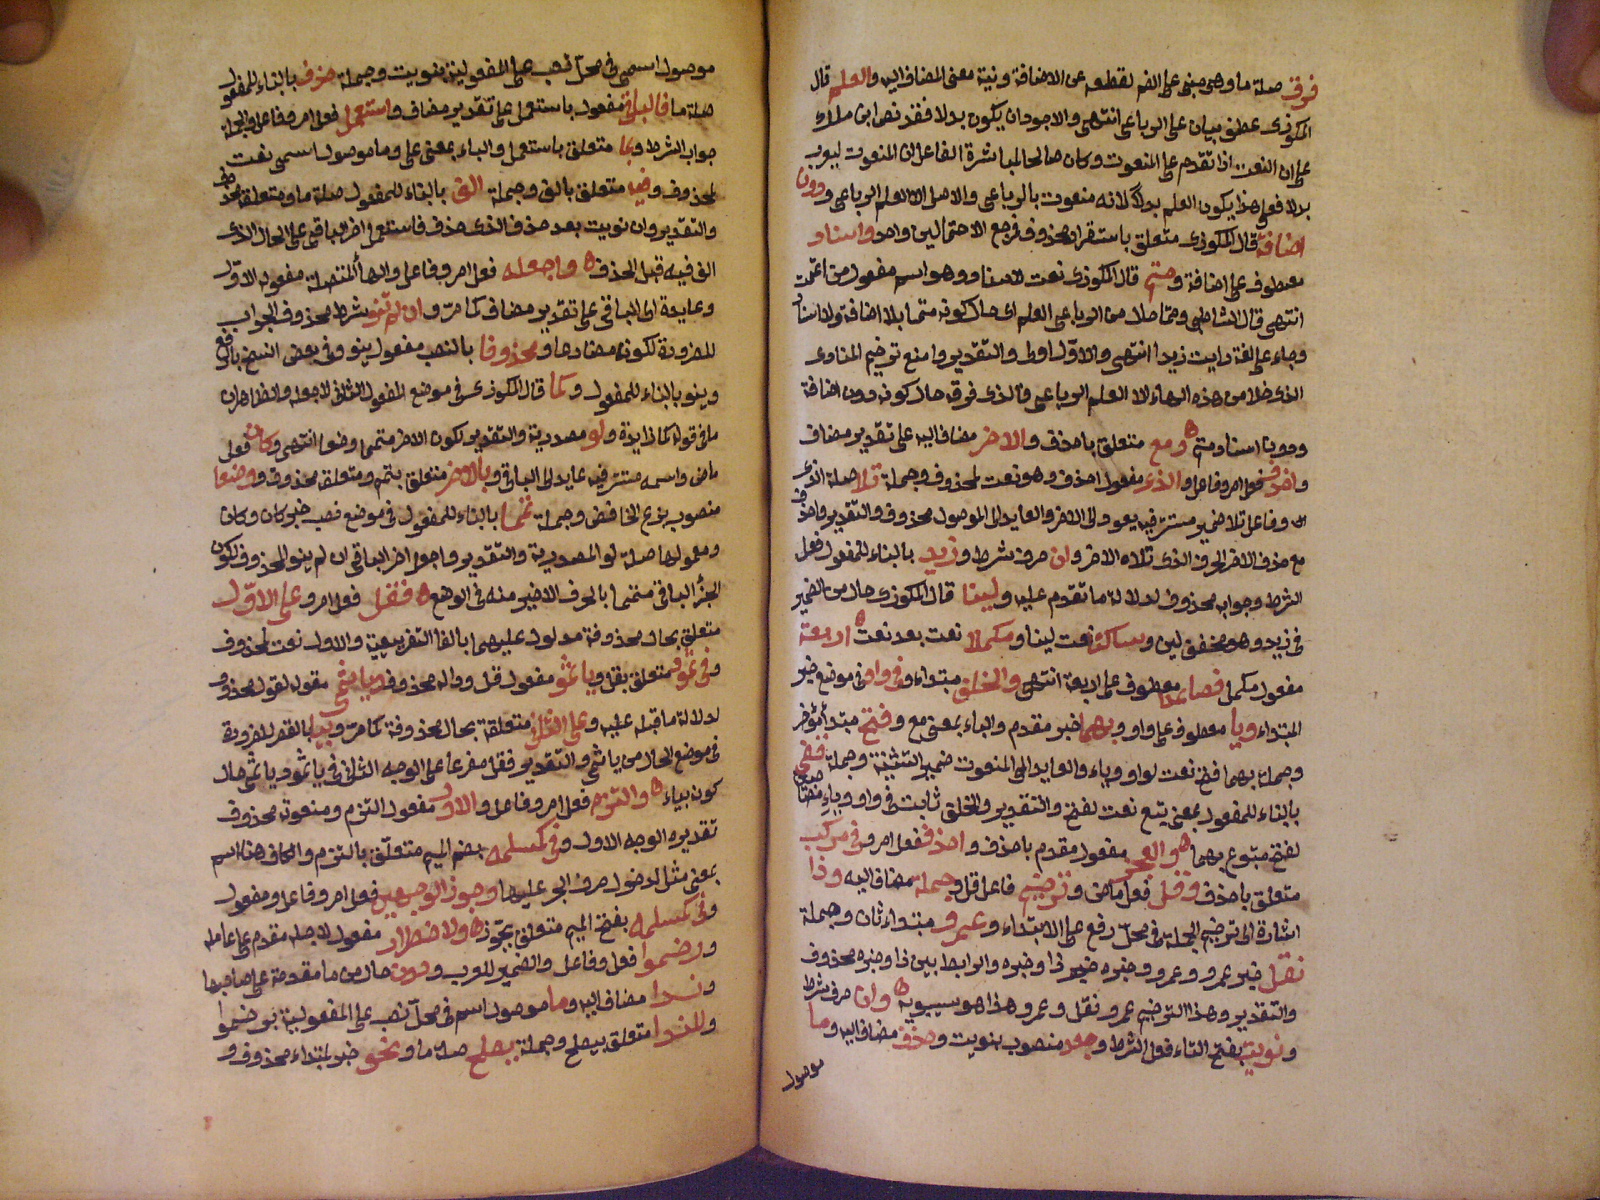 فوق صلة ما وهى مبنى على الضم لقطعه عن الاضافة ونية معنى المضاف اليه والعلم قال
المكودى عطف بيان على الرباعى انتهى والاجود ان يكون بدلا فقد نص ابن مالك
على ان النعت اذا تقدم على المنعوت وكان صالحا لمباشرة الفاعل ان المنعوت يعرب
بدلا فعلى هذا يكون العلم بدلا لانه منعوت بالرباعى والاصل الا العلم الرباعى ودون
اضافة قال المكودى متعلق باستقرار محذوف فرجع الاحتمالين واحد واسناد
معطوف على اضافة ومتم قال المكودى نعت لاسناد وهو اسم مفعول من اتممت
انتهى قال الشاطبى ومتما حال من الرباعى العلم اى حال كونه متما بلا اضافة ولا اسناد
وجاء على لغة رايت زيد انتهى والاول اولى والتقدير وامنع ترخيم المنادى
الذى خلا من هذه الهاء الا العلم الرباعى فالذى فوقه حال كونه دون اضافة
ودون اسناد متم ومع متعلق باحذف والاخر مضاف اليه على تقدير مضاف
واحذف فعل امر وفاعل والذى مفعول احذف وهو نعت لمحذوف وجملة تلا صلة الذى
وفاعل تلا ضمير مستتر فيه يعود الى الاخر والعايد الى الموصول محذوف والتقدير واحذف
مع حذف الاخر الحرف الذى تلاه الاخر وان حرف شرط وزيد بالبناء للمفعول فعل
الشرط وجوابه محذوف لدلالة ما تقدم عليه ولينا قال المكودى حال من الضمير
فى زيد وهو مخفف لين وساكنا نعت لينا ومكملا نعت بعد نعت اربعة
مفعول مكملا فصاعدا معطوف على اربعة انتهى والخلف مبتداء وفى واو فى موضع خبر
المبتداء ويا معطوف على واو وبهما خبر مقدم والباء بمعنى مع وفتح مبتدأ مؤخر
وجملة بهما فتح نعت لواو وياء والعايد الى المنعوت ضمير التثنية وجملة قفى
بالبناء للمفعول بمعنى يتبع نعت لفتح والتقدير والخلف ثابت فى واو وياء
لفتح متبوع بهما والعجز مفعول مقدم باحذف واحذف فعل امر وفى مركب
متعلق باحذف وقل فعل ماض وترخيم فاعل قل وجملة مضاف اليه وذا
اشارة الى ترخيم الجملة فى محل رفع على الابتداء وعمرو مبتداء ثان وجملة
نقل خبر عمرو وعمرو وخبره خبر ذا وخبره والرابط بين ذا وخبره محذوف
والتقدير وهذا الترخيم عمرو نقل وعمرو هذا هو سيبويه وان حرف شرط
ونويت بفتح التاء فعل الشرط وبعد منصوب بنويت وحذف مضاف اليه وما
موصول
موصول اسمى فى محل نصب على المفعولية بنويت وجملة حذف بالبناء للمفعول
صلة ما فالباقى مفعول باستعمل على تقدير مضاف واستعمل فعل امر وفاعل والجملة
جواب الشرط وبما متعلق باستعمل والباء بمعنى على وما موصول اسمى نعت
لمحذوف وفيه متعلق بالف وجملة الف بالبناء للمفعول صلة ما ومتعلقه محذوف
والتقدير وان نويت بعد حذف الذى حذف فاستعمل اخر الباقى على الحال الذى
الف فيه قبل الحذف واجعله فعل امر وفاعل والهاء المتصلة مفعوله الاول
وعايدة الى الباقى على تقدير مضاف كما مر وان لم تنو شرط محذوف الجواب
للضرورة لكونه مضارعا ومحذوفا بالنصب مفعول ينو وفى بعض النسخ بالرفع
وينو بالبناء للمفعول وكما قال المكودى فى موضع المفعول الثانى لاجعله والظاهر ان
ما فى قوله كما زايدة ولو مصدرية والتقدير لكون الاخر متمما وضعا انتهى وكان فعل
ماض واسمه مستتر فيه عايد الى الباقى وبالاخر متعلق بتمم ومتعلقه محذوف ووضعا
منصوب بنزع الخافض وجملة تمما بالبناء للمفعول فى موضع نصب خبر كان وكان
ومعمولها صلة لو المصدرية والتقدير واجعل اخر الباقى ان لم ينو المحذوف لكون
الجزء الباقى متمما بالحرف الاخير منه فى الوضع فقل فعل امر وعلى الاول
متعلق بحال محذوفة مدلول عليهما بالفا التفريعية والاول نعت لمحذوف
وفى ثمود متعلق بقل ويا ثمو مفعول قل وداله محذوفة ويا ثمى مقول لقول محذوف
لدلالة ما قبله عليه وعلى الثانى متعلقة بحال محذوفة كما مر وبيا بالقصر للضرورة
فى موضع الحال من يا ثمى والتقدير فقل مفرعا على الوجه الثانى فى يا ثمود يا ثمى حال
كون بياء والتزم فعل امر وفاعل والاول مفعول التزم ومنعوته محذوف
تقديره الوجه الاول وفى كمسلمه بضم الميم متعلق بالتزم والكاف هنا اسم
بمعنى مثل لدخول حرف الجر عليها وجوز الوجهين فعل امر وفاعل ومفعول
وفى كمسلمه بفتح الميم متعلق بجوز ولاضطرار مفعول لاجله مقدم على عامله
ورخموا فعل وفاعل والضمير للعرب ودون حال من ما مقدمة على صاحبها
وندا مضاف اليه وما موصول اسمى فى محل نصب على المفعولية برخموا
وللندا متعلق بيصلح وجملة يصلح صلة ما ونحو خبر لمبتداء محذوف و